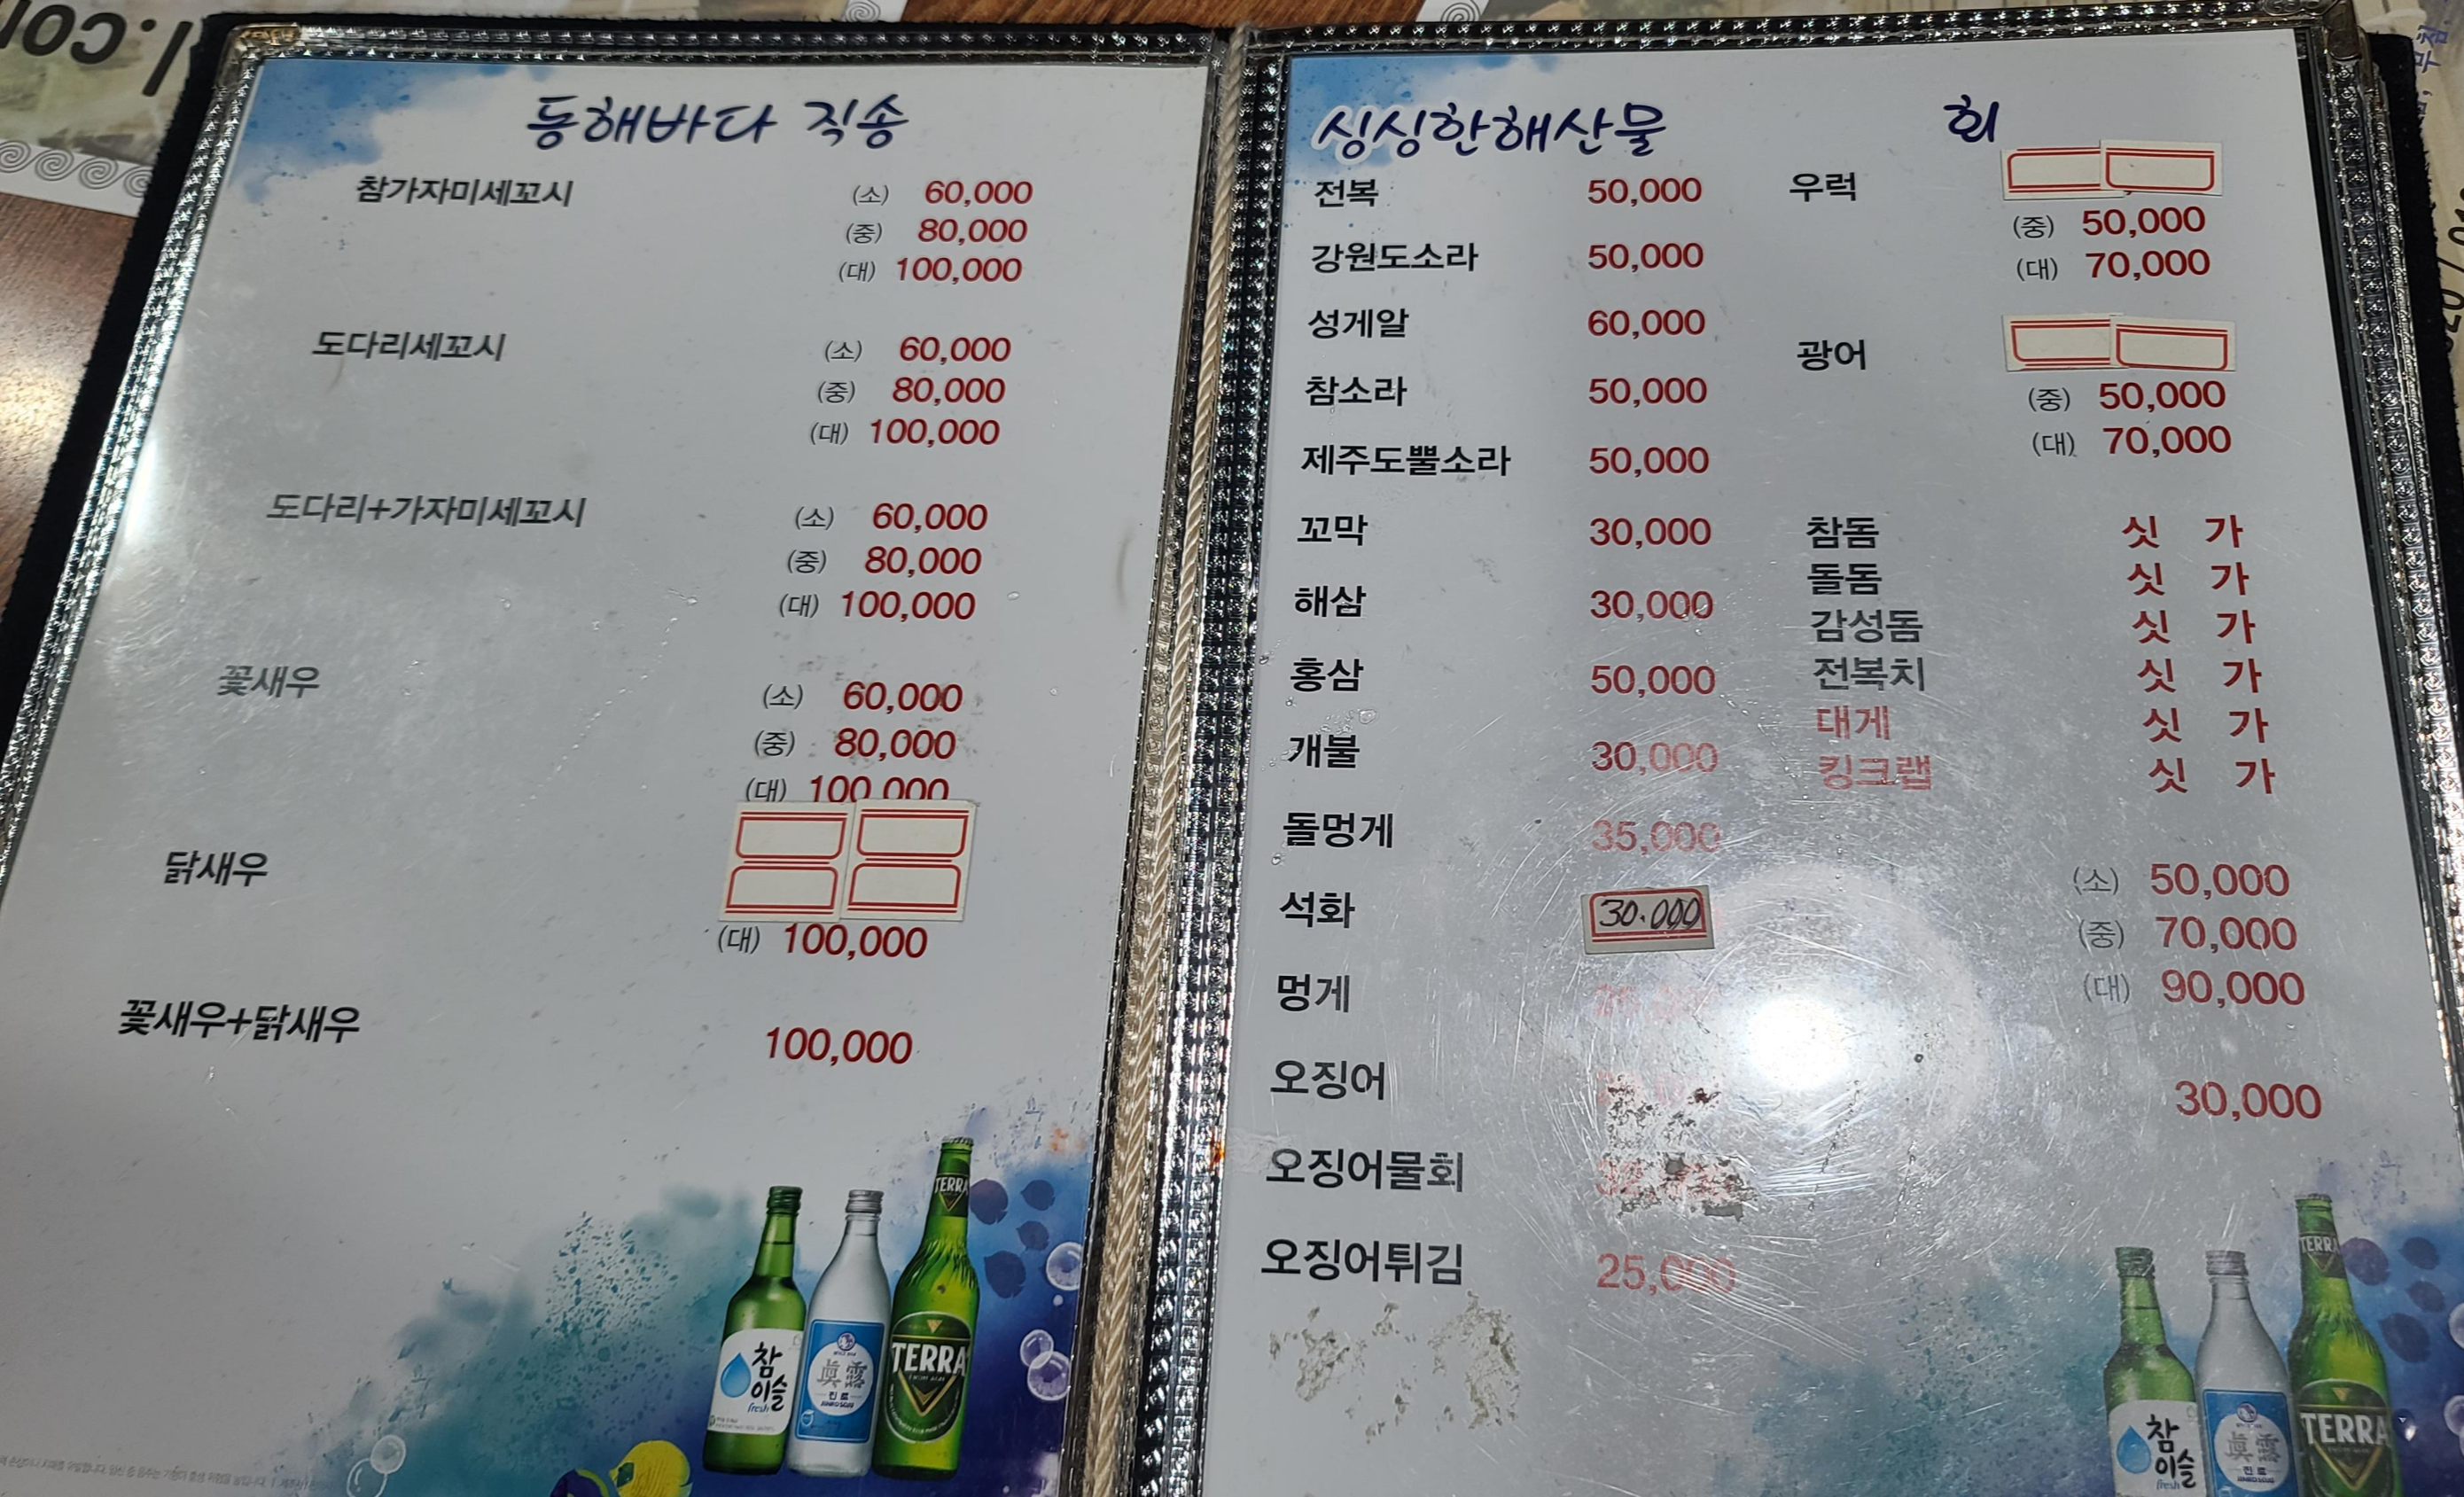 동해바다 직송
참가자미세꼬시 (소) 60,000
(중) 80,000
(대) 100,000
도다리세꼬시 (소) 60,000
(중) 80,000
(대) 100,000
도다리+가자미세꼬시 (소) 60,000
(중) 80,000
(대) 100,000
꽃새우 (소) 60,000
(중) 80,000
(대) 100,000
닭새우
(대) 100,000
꽃새우+닭새우 100,000
참이슬
fresh
眞露
진로
TERRA
TERRA
싱싱한해산물
전복 50,000
강원도소라 50,000
성게알 60,000
참소라 50,000
제주도뿔소라 50,000
꼬막 30,000
해삼 30,000
홍삼 50,000
개불 30,000
돌멍게 35,000
석화 30.000
멍게
오징어
오징어물회
오징어튀김 25,000
회
우럭
(중) 50,000
(대) 70,000
광어
(중) 50,000
(대) 70,000
참돔 싯 가
돌돔 싯 가
감성돔 싯 가
전복치 싯 가
대게 싯 가
킹크랩 싯 가
(소) 50,000
(중) 70,000
(대) 90,000
30,000
참이슬
fresh
眞露
진로
TERRA
TERRA